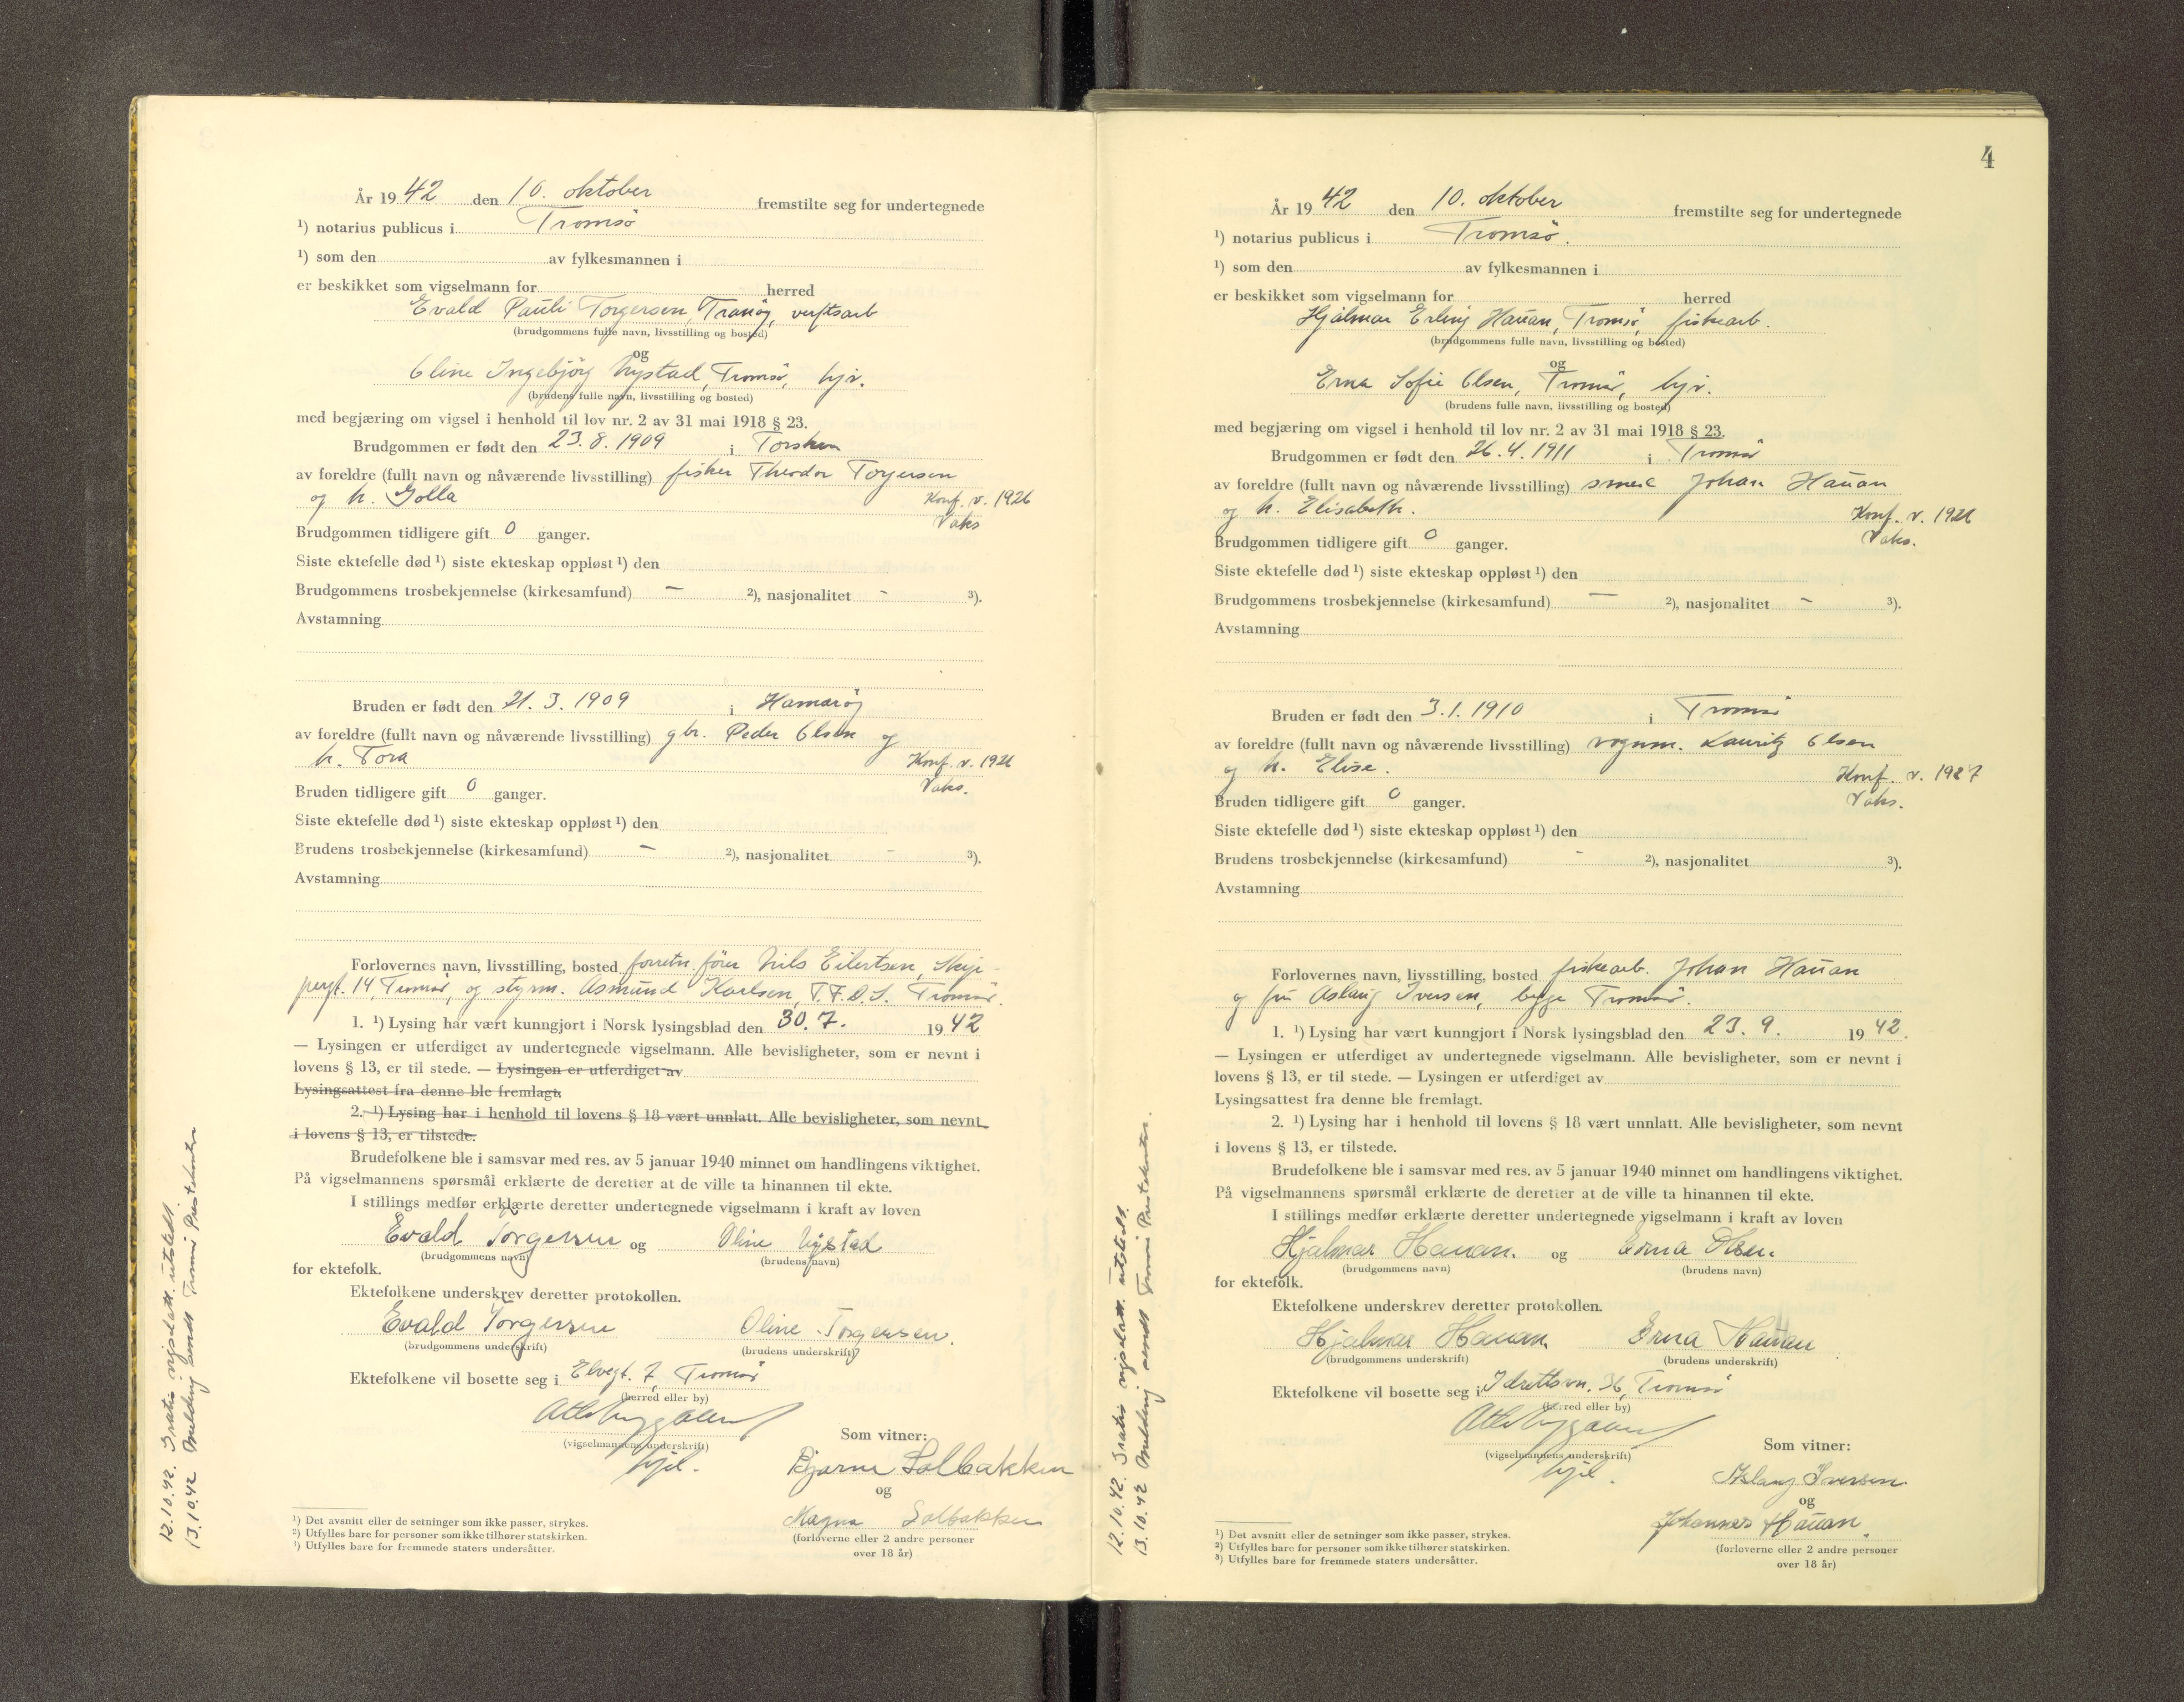 År 1942 den 10. oktober fremstilte seg for undertegnede
¹) notarius publicus i Tromsö
¹) som den av fylkesmannen i
er beskikket som vigselmann for herred
Evald Pauli Torgersen, Tranöy, verftsarb
(brudgommens fulle navn, livsstilling og bosted)
og
Oline Ingebjörg Nystad, Tromsö, hjv.
(brudens fulle navn, livsstilling og bosted)
med begjæring om vigsel i henhold til lov nr. 2 av 31 mai 1918 § 23.
Brudgommen er født den 23.8.1909 i Torsken
av foreldre (fullt navn og nåværende livsstilling) fisker Theodor Torgersen
og h. Golla Konf. v. 1926
Vaks
Brudgommen tidligere gift 0 ganger.
Siste ektefelle død ¹) siste ekteskap oppløst ¹) den
Brudgommens trosbekjennelse (kirkesamfund) — ²), nasjonalitet - ³).
Avstamning
Bruden er født den 21.3.1909 i Hamaröy
av foreldre (fullt navn og nåværende livsstilling) gbr. Peder Olsen og
h. Tora Konf. v. 1926
Vaks.
Bruden tidligere gift 0 ganger.
Siste ektefelle død ¹) siste ekteskap oppløst ¹) den
Brudens trosbekjennelse (kirkesamfund) - ²), nasjonalitet - ³).
Avstamning
Forlovernes navn, livsstilling, bosted forretn.förer Nils Eilertsen, Skip-
pergt. 14, Tromsö, og styrm. Asmund Karlsen, T.F.D.S. Tromsö.
1. ¹) Lysing har vært kunngjort i Norsk lysingsblad den 30.7. 1942
— Lysingen er utferdiget av undertegnede vigselmann. Alle bevisligheter, som er nevnt i
lovens § 13, er til stede. — Lysingen er utferdiget av
Lysingsattest fra denne ble fremlagt.
2. ¹) Lysing har i henhold til lovens § 18 vært unnlatt. Alle bevisligheter, som nevnt
i lovens § 13, er tilstede.
Brudefolkene ble i samsvar med res. av 5 januar 1940 minnet om handlingens viktighet.
På vigselmannens spørsmål erklærte de deretter at de ville ta hinannen til ekte.
I stillings medfør erklærte deretter undertegnede vigselmann i kraft av loven
Evald Torgersen og Oline Nystad
(brudgommens navn) (brudens navn)
for ektefolk.
Ektefolkene underskrev deretter protokollen.
Evald Torgersen Oline Torgersen.
(brudgommens underskrift) (brudens underskrift)
Ektefolkene vil bosette seg i Elvegt. 7, Tromsö
(herred eller by)
(vigselmannens underskrift)
Som vitner:
Bjarne Solbakken
og
Magna Solbakken
(forloverne eller 2 andre personer
over 18 år)
¹) Det avsnitt eller de setninger som ikke passer, strykes.
²) Utfylles bare for personer som ikke tilhører statskirken.
¹) Utfylles bare for fremmede staters undersåtter.
12.10.42. Gratis vigselatt. utstedt.
13.10.42 Melding sendt Tromsö Prestekontor
4
År 1942 den 10. oktober fremstilte seg for undertegnede
¹) notarius publicus i Tromsö.
¹) som den av fylkesmannen i
er beskikket som vigselmann for herred
Hjalmar Erling Hauan, Tromsö, fiskearb.
(brudgommens fulle navn, livsstilling og bosted)
og
Erna Sofie Olsen, Tromsö, hjv.
(brudens fulle navn, livsstilling og bosted)
med begjæring om vigsel i henhold til lov nr. 2 av 31 mai 1918 § 23.
Brudgommen er født den 26.4.1911 i Tromsö
av foreldre (fullt navn og nåværende livsstilling) smed Johan Hauan
og h. Elisabeth. Konf. v. 1926
Vaks.
Brudgommen tidligere gift 0 ganger.
Siste ektefelle død ¹) siste ekteskap oppløst ¹) den
Brudgommens trosbekjennelse (kirkesamfund) — ²), nasjonalitet - ³).
Avstamning
Bruden er født den 3.1.1910 i Tromsö
av foreldre (fullt navn og nåværende livsstilling) vognm. Lauritz Olsen
og h. Elise. Konf. v. 1927
Vaks.
Bruden tidligere gift 0 ganger.
Siste ektefelle død ¹) siste ekteskap oppløst ¹) den
Brudens trosbekjennelse (kirkesamfund) - ²), nasjonalitet ³).
Avstamning
Forlovernes navn, livsstilling, bosted fiskearb. Johan Hauan
og fru Aslaug Iversen, begge Tromsö.
1. ¹) Lysing har vært kunngjort i Norsk lysingsblad den 23.9. 1942.
— Lysingen er utferdiget av undertegnede vigselmann. Alle bevisligheter, som er nevnt i
lovens § 13, er til stede. — Lysingen er utferdiget av
Lysingsattest fra denne ble fremlagt.
2. ¹) Lysing har i henhold til lovens § 18 vært unnlatt. Alle bevisligheter, som nevnt
i lovens § 13, er tilstede.
Brudefolkene ble i samsvar med res. av 5 januar 1940 minnet om handlingens viktighet.
På vigselmannens spørsmål erklærte de deretter at de ville ta hinannen til ekte.
I stillings medfør erklærte deretter undertegnede vigselmann i kraft av loven
Hjalmar Hauan. og Erna Olsen.
(brudgommens navn) (brudens navn)
for ektefolk.
Ektefolkene underskrev deretter protokollen.
Hjalmar Hauan. Erna Hauan
(brudgommens underskrift) (brudens underskrift)
Ektefolkene vil bosette seg i Idrettsvn. 36, Tromsö
(herred eller by)
(vigselmannens underskrift)
Som vitner:
Aslaug Iversen
og
Johannes Hauan.
(forloverne eller 2 andre personer
over 18 år)
¹) Det avsnitt eller de setninger som ikke passer, strykes.
²) Utfylles bare for personer som ikke tilhører statskirken.
³) Utfylles bare for fremmede staters undersåtter.
12.10.42. Gratis vigselatt. utstedt.
13.10.42 Melding sendt Tromsö Prestekontor.